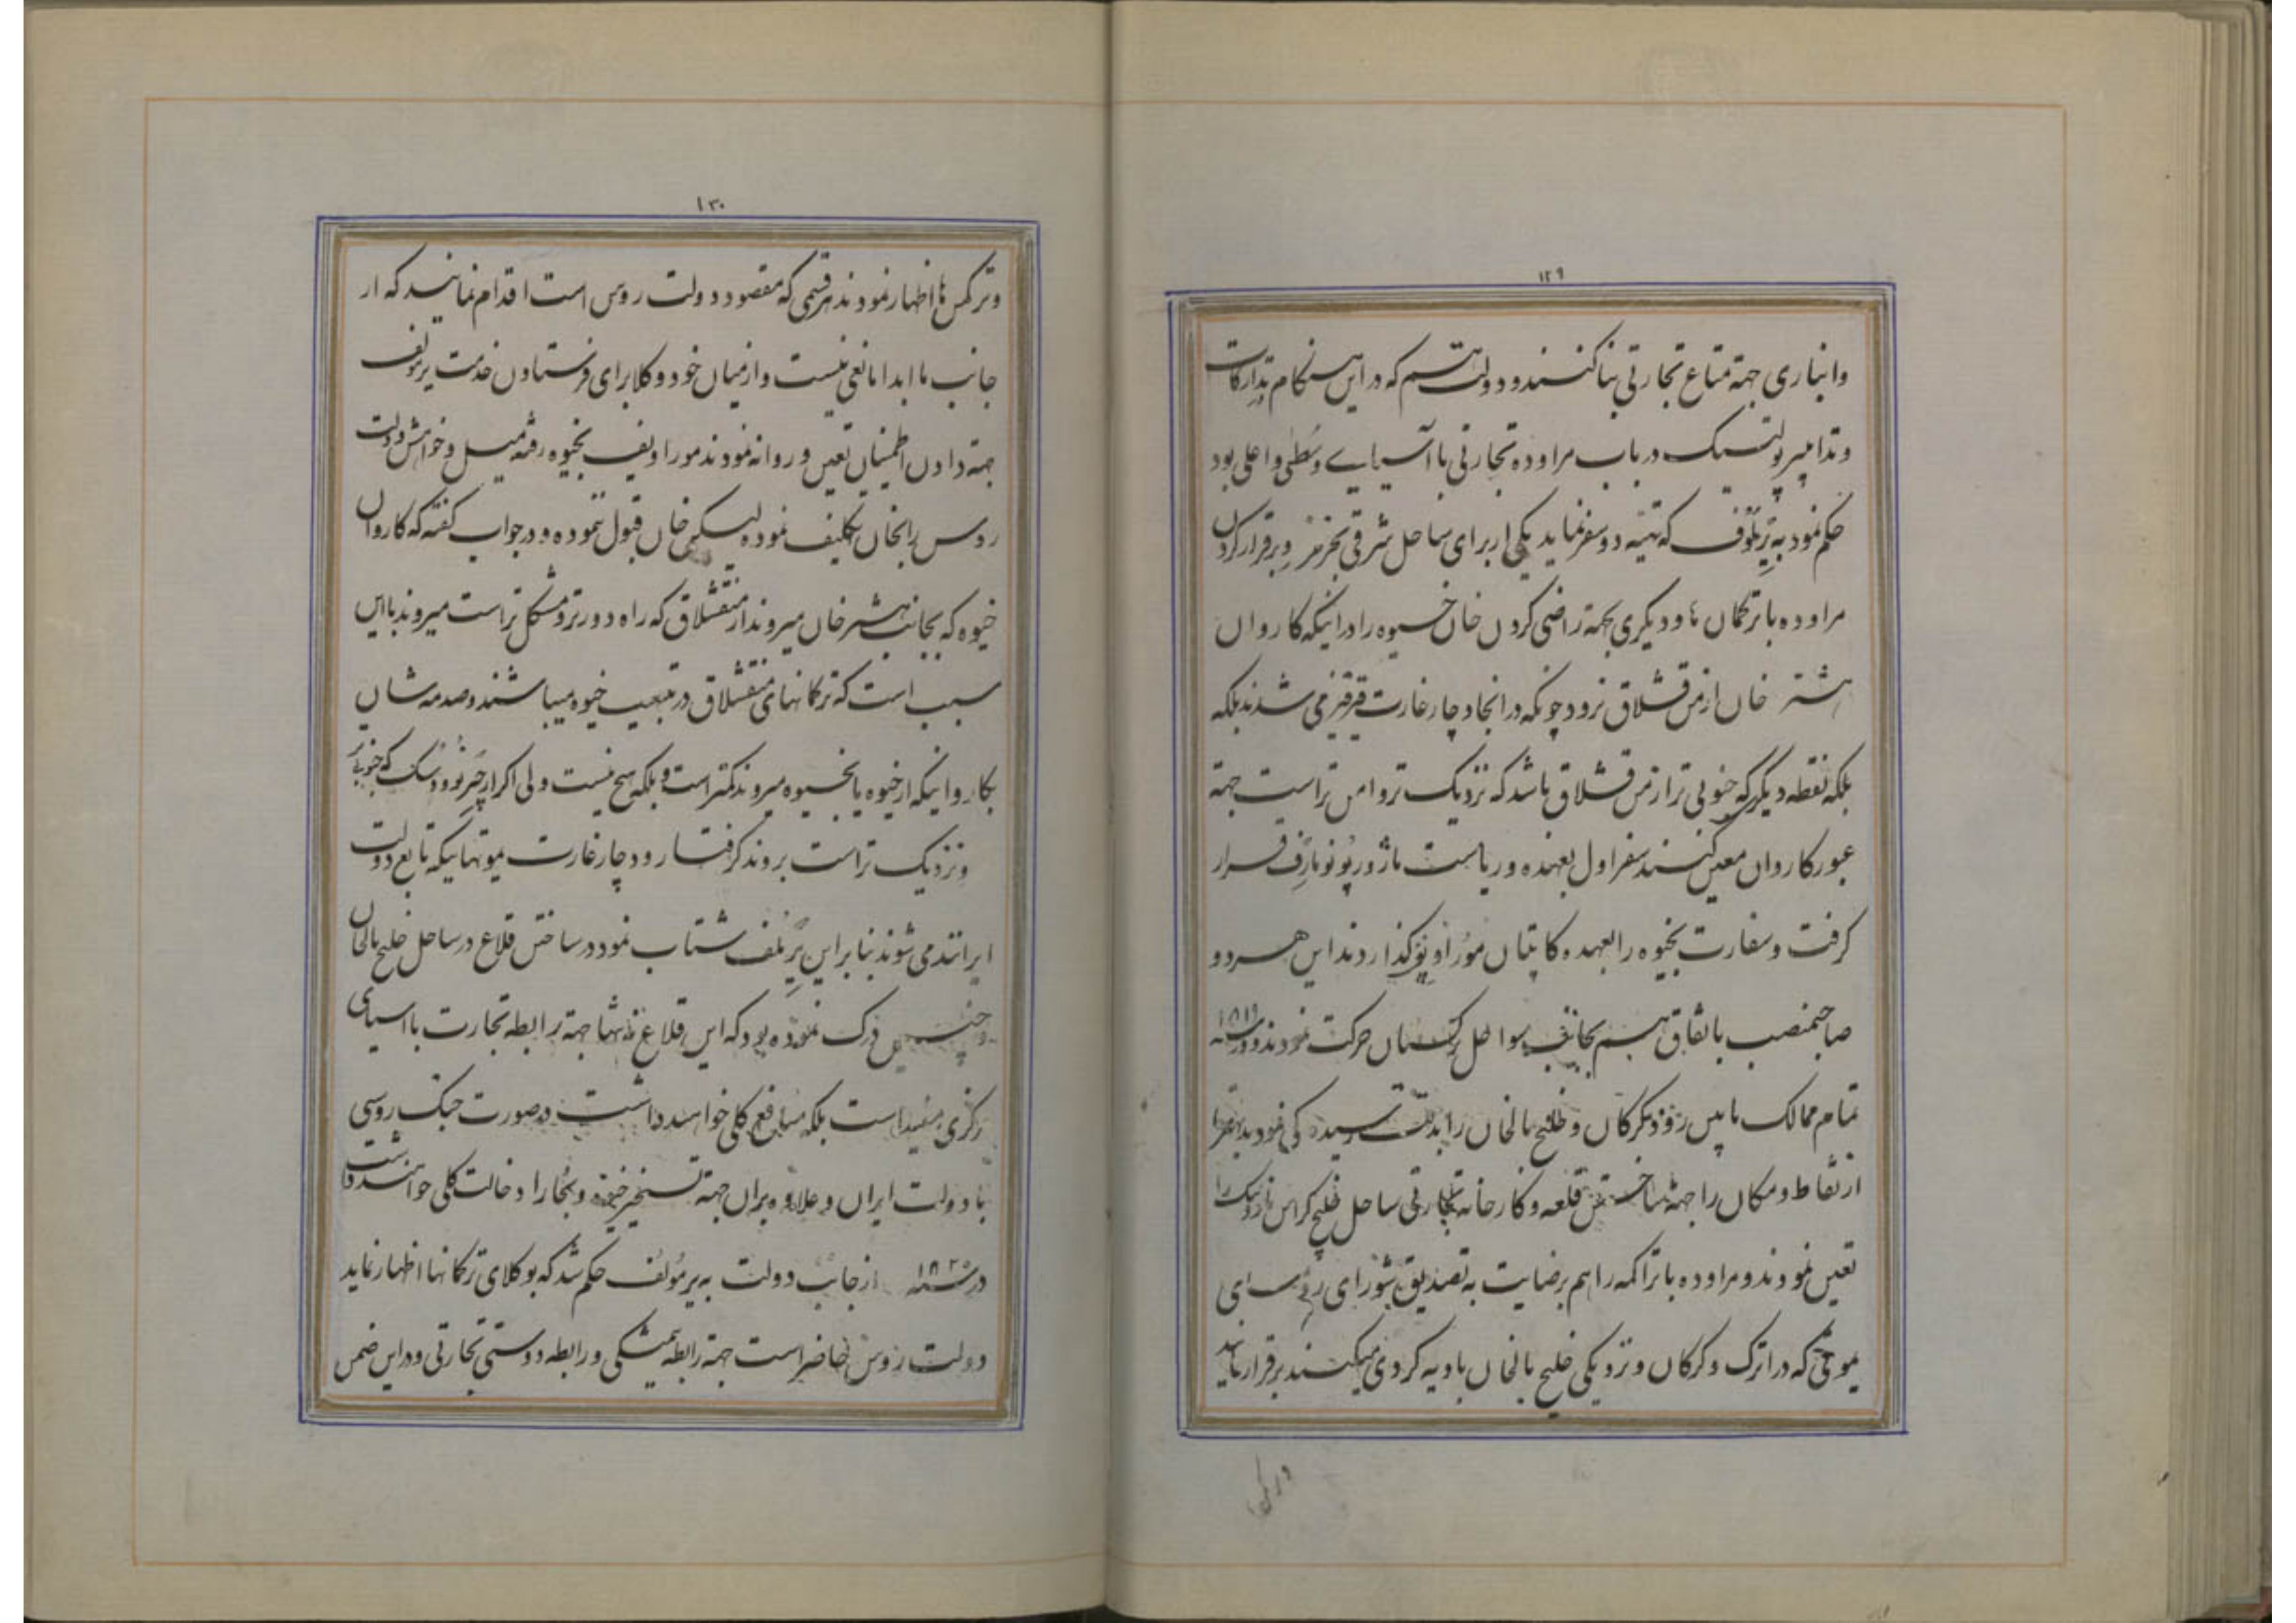 ۱۲۹
وانباری جهة متاع تجارتی بنا کنند و دولت هم که در این هنگام تدارکات
وتدابیر پولتیک در باب مراوده تجارتی با آسیایی وسطی واعلی بود
حکم نمود به یرملوف که تهیه دو سفر نماید یکی از برای ساحل شرقی بحر خزر و برقرار کردن
مراوده با ترکمان ها و دیگری بجهة راضی کردن خان خیوه را در اینکه کاروان
هشتر خان از من قشلاق نرود چونکه در انجا دچار غارت قرقز می شدند بلکه
بلکه نقطه دیگر که جنوبی تر از من قشلاق باشد که نزدیک تر و امن تر است جهة
عبور کاروان معین کنند سفر اول بعهده و ریاست ماژور پونومارف قرار
گرفت و سفارت بخیوه را بعهده کاپتان موراویف گذاردند این هر دو
صاحبمنصب باتفاق هم بجانب سواحل ترکستان حرکت نمودند و در سنه ۱۸۱۹
تمام ممالک مابین رود گرگان و خلیج بالخان را بدقت رسیده گی نمودند
از نقاط و مکان را جهة ساختن قلعه و کارخانه تجارتی ساحل خلیج را
تعین نمودند و مراوده با تراکمه را هم برضایت به تصدیق شورای رؤسای
یموتی که در اترک و گرگان و نزدیکی خلیج بالخان بادیه گردی میکنند برقرار نمایند
۱۳۰
و ترکمن ها اظهار نمودند هر قسمی که مقصود دولت روس است اقدام نمایند که از
جانب ما ابدا مانعی نیست و از میان خود وکلا برای فرستادن خدمت یرمولف
جهة دادن اطمینان تعین و روانه نمودند موراویف بخیوه رفته میل و خواهش دولت
روس را بخان تکلیف نموده لیکن خان قبول ننموده و در جواب گفته که کاروان
خیوه که بجانب هشتر خان میروند از منقشلاق که راه دورتر و مشکل تر است میروند با این
سبب است که ترکمانهای منقشلاق در تبعیت خیوه میباشند و صدمه شان
بکاروانیکه از خیوه یا بخیوه میروند کمتر است و بلکه هیچ نیست ولی اگر از که جنوبی تر
و نزدیک تر است بروند گرفتار و دچار غارت یموتهاییکه تابع دولت
ایرانند می شوند بنابراین یرملف شتاب نمود در ساختن قلاع در ساحل خلیج بالخان
و چنین درک نموده بود که این قلاع نه تنها جهة رابطه تجارت با اسیای
مرکزی مفید است بلکه منافع کلی خواهند داشت در صورت جنگ روسی
با دولت ایران و علاوه بران جهة تسخیر خیوه و بخارا دخالت کلی خواهند داشت
در سنه ۱۸۲۰ از جانب دولت به یرمولف حکم شد که بوکلای ترکمانها اظهار نماید
دولت روس حاضر است جهة رابطه همیشگی و رابطه دوستی تجارتی و در این ضمن